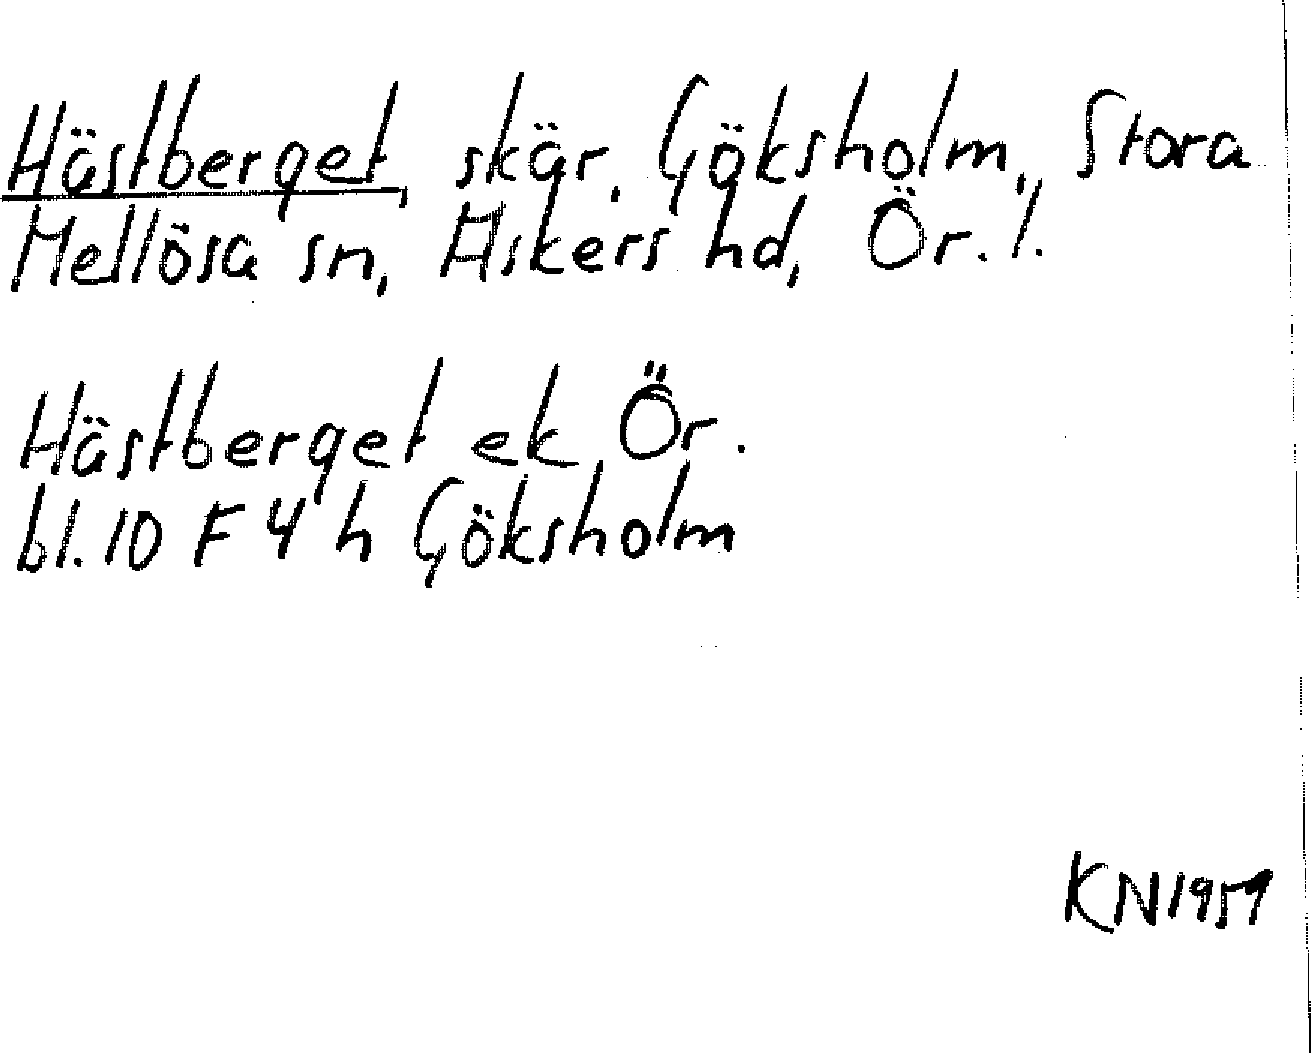 Hästberget, skär, Göksholm, Stora
Mellösa sn, Askers hd, Ör. l.
Hästberget ek Ör.
bl. 10 F 4 h Göksholm
KN1959